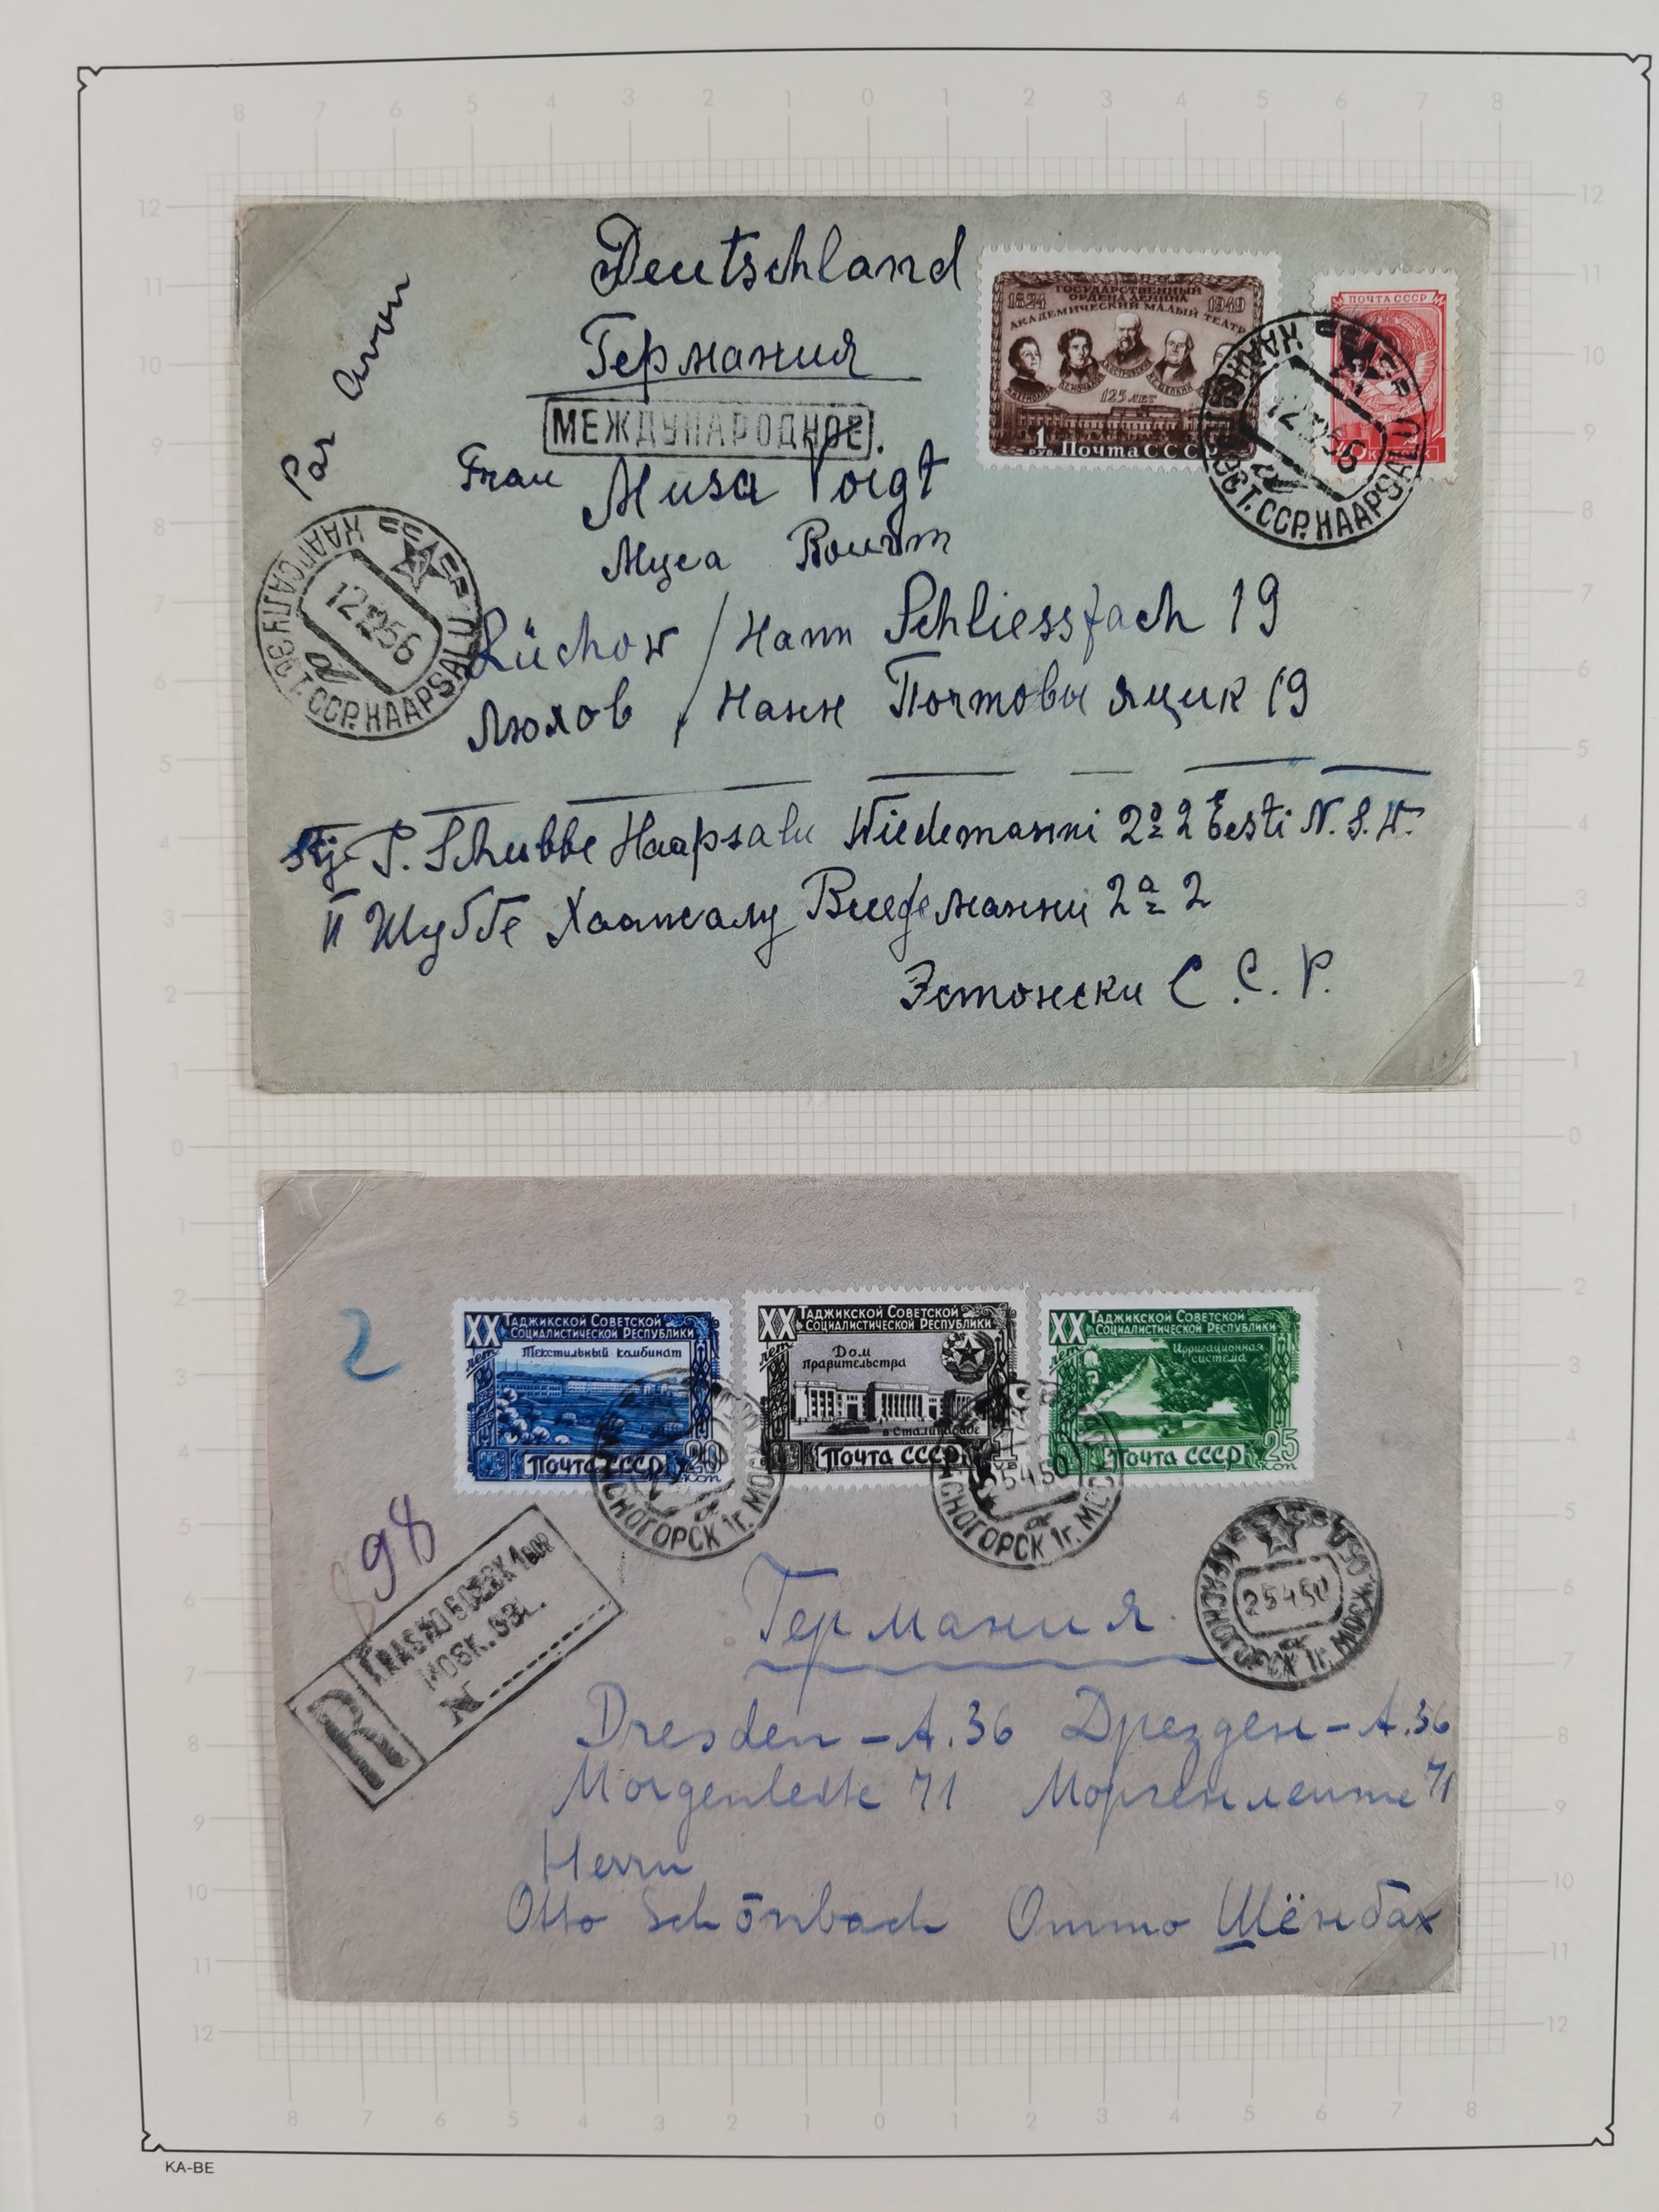 Deutschland
Германия
Par Avion
МЕЖДУНАРОДНОЕ
Frau Musa Voigt
Муса Воигт
Lüchow / Hann Schliessfach 19
Люхов / Hанн Почтовы ящик 19
P. Schubbe Haapsalu Wiedemanni 2a 2 Eesti N.S.V.
П Шуббе Хаапсалу Видеманни 2a 2
Эстонски С.С.Р.
1824 ГОСУДАРСТВЕННЫЙ 1949
ОРДЕНА ЛЕНИНА
АКАДЕМИЧЕСКИЙ МАЛЫЙ ТЕАТР
125 ЛЕТ
1 РУБ. Почта СССР
ПОЧТА СССР
ЭСТ. ССР. HAAPSALU
12 56
ХААПСАЛУ ЭСТ. ССР. HAAPSALU
12 56
2
XX лет ТАДЖИКСКОЙ СОВЕТСКОЙ
СОЦИАЛИСТИЧЕСКОЙ РЕСПУБЛИКИ
Текстильный комбинат
Почта СССР 20 коп
XX лет ТАДЖИКСКОЙ СОВЕТСКОЙ
СОЦИАЛИСТИЧЕСКОЙ РЕСПУБЛИКИ
Дом
правительства
в Сталинабаде
Почта СССР 1
XX лет ТАДЖИКСКОЙ СОВЕТСКОЙ
СОЦИАЛИСТИЧЕСКОЙ РЕСПУБЛИКИ
Ирригационная
система
Почта СССР 25 коп
КРАСНОГОРСК 1г. МОСК. ОБЛ.
25 4 50
98
R
MOSK. OBL.
N
Германия
Dresden - A. 36 Дрезден - А. 36
Morgenleite 71 Моргенлеите 71
Herrn
Otto Schönbach Отто Шёнбах
KA-BE